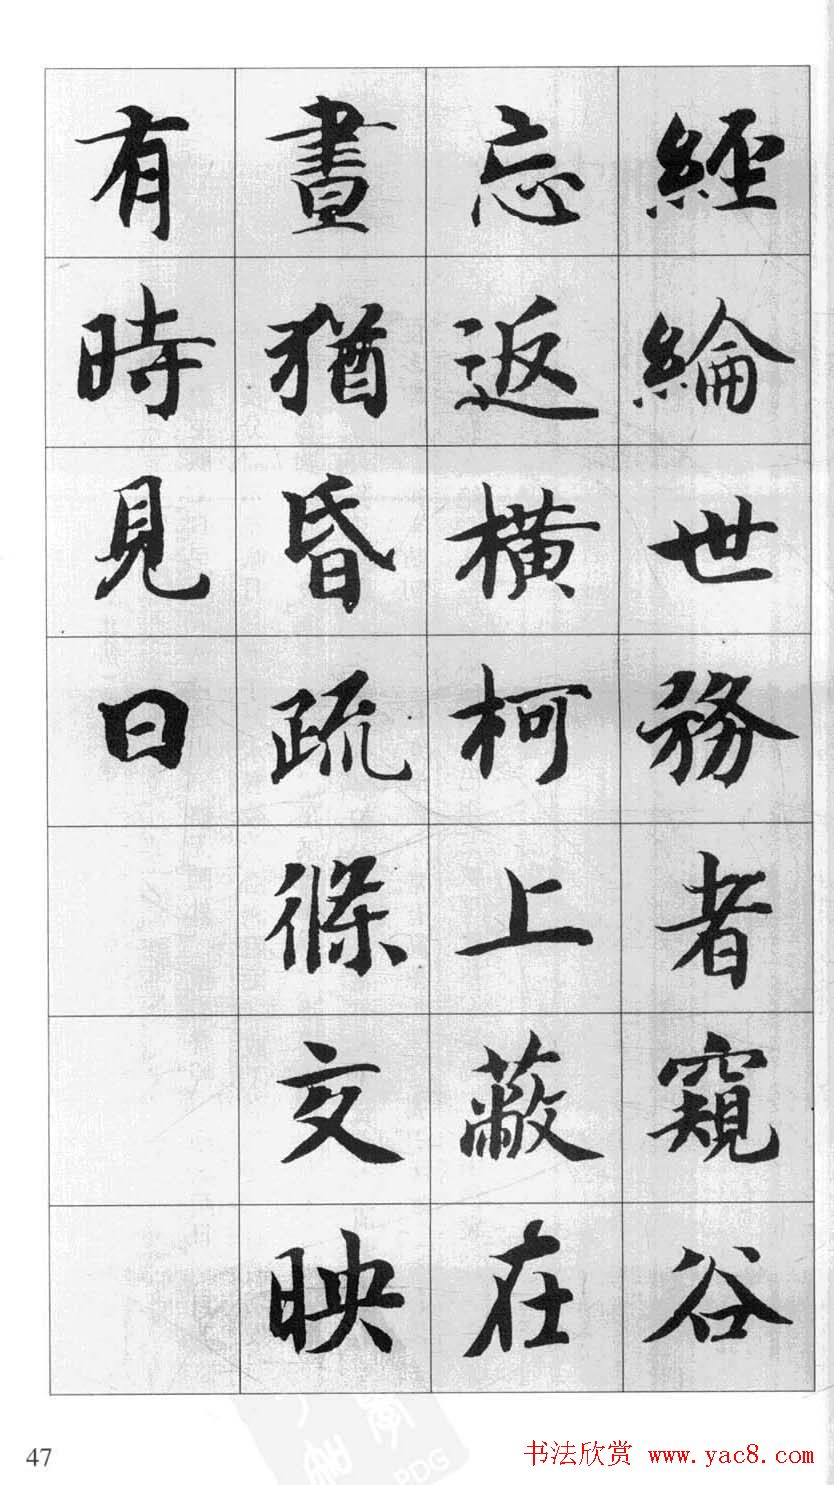 經綸世務者窺谷
忘返橫柯上蔽在
晝猶昏疏條交映
有時見日
47
书法欣赏 www.yac8.com
PDG